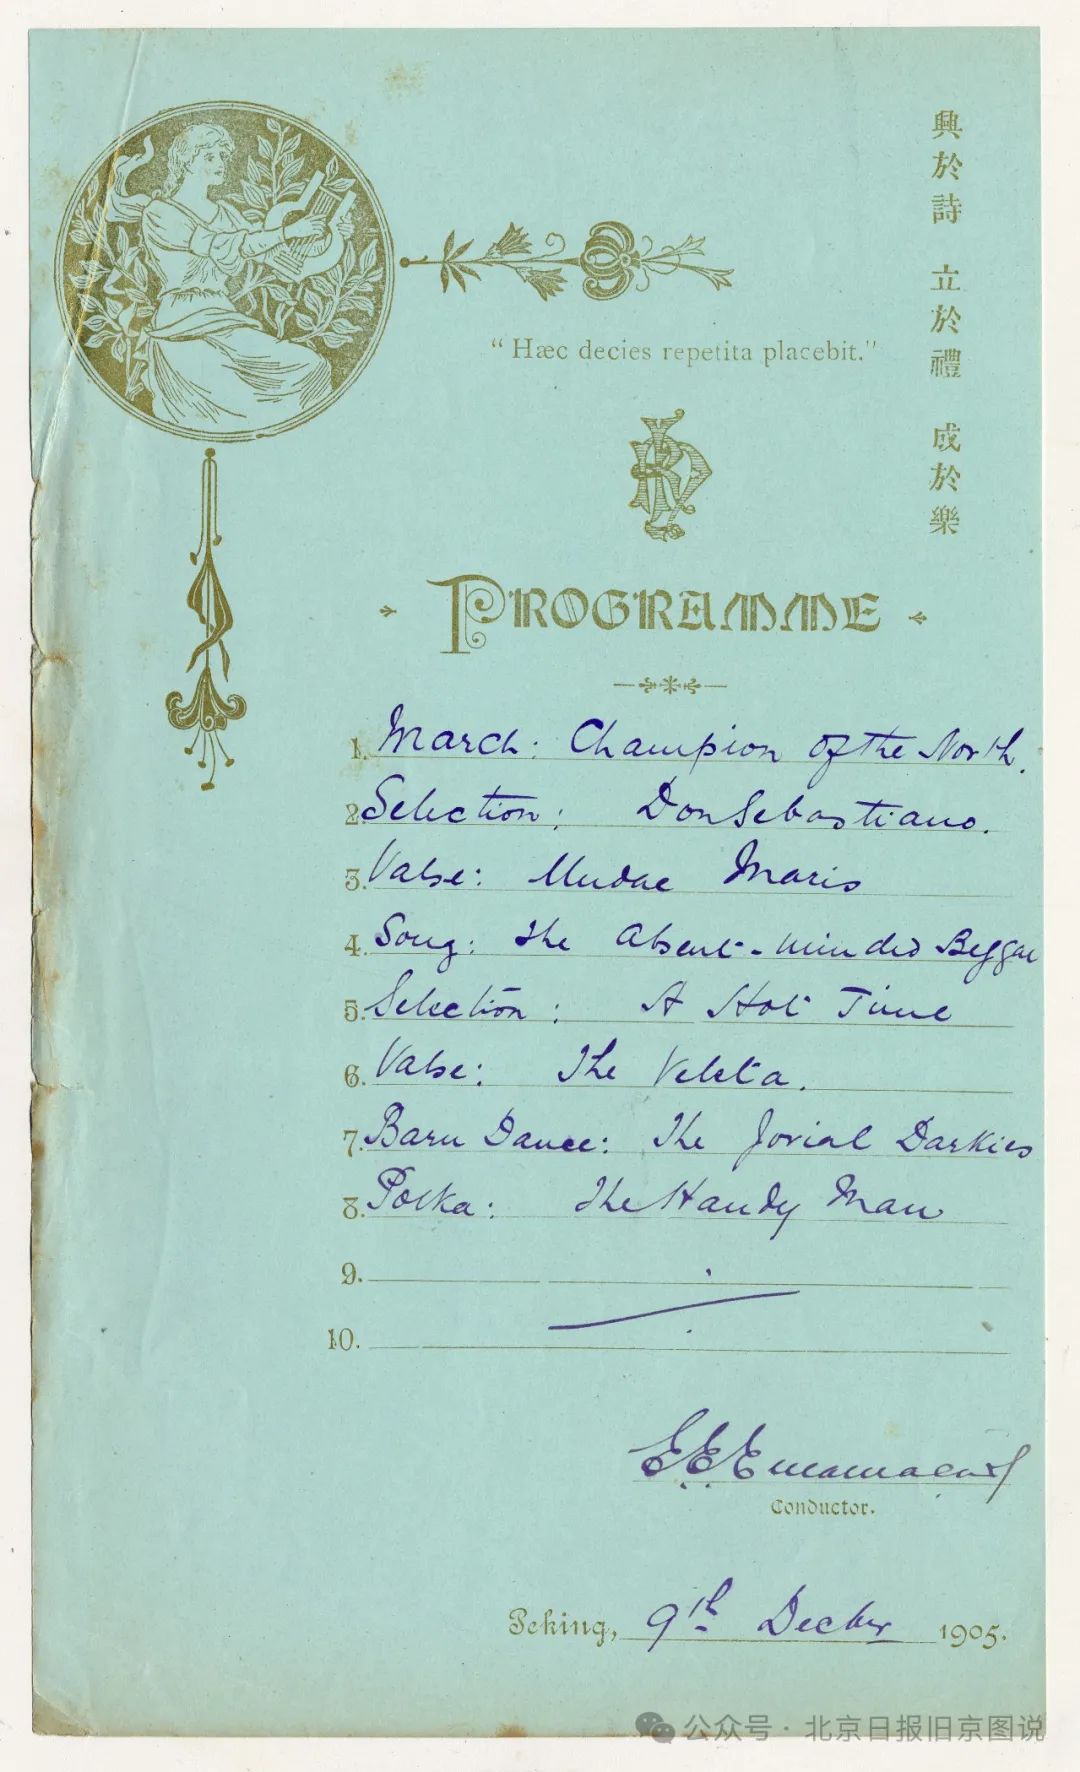 興於詩 立於禮 成於樂
"Hæc decies repetita placebit."
PROGRAMME
1. March: Champion of the North.
2. Selection: Don Sebastiano.
3. Valse: Undae Maris
4. Song: The Absent-minded Beggar
5. Selection: A Hot Time
6. Valse: The Veleta.
7. Barn Dance: The Jovial Darkies
8. Polka: The Handy Man
9.
10.
E. E. Encarnacao
Conductor.
Peking, 9th Decber 1905.
公众号 · 北京日报旧京图说